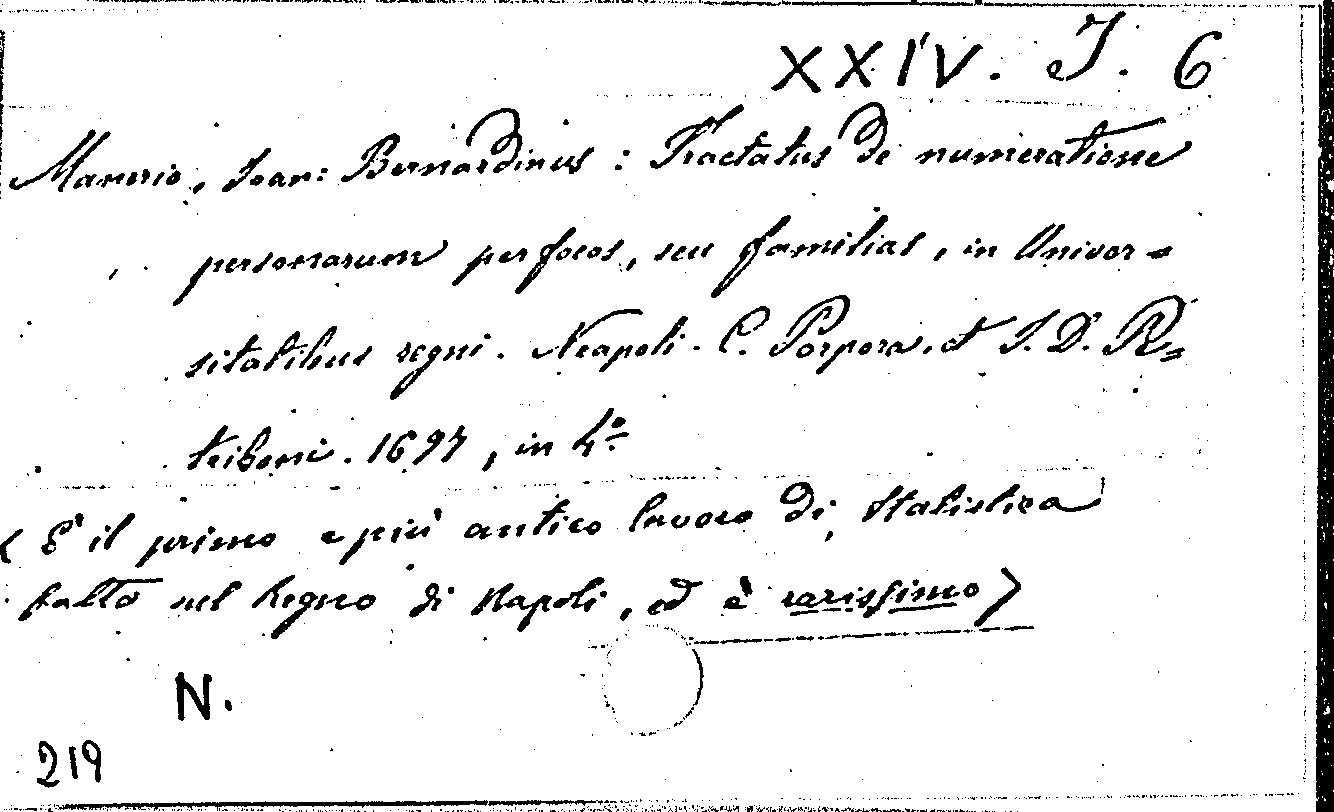 XXIV. J. 6
Manerio, Joan: Bernardinus: Tractatus de numeratione
personarum per focos, seu familias, in Univer=
sitatibus regni. Neapoli. C. Porpora. et J. D. Pe=
triboni. 1697, in 4°.
(È il primo e più antico lavoro di Statistica
fatto nel Regno di Napoli, ed è rarissimo)
N.
219